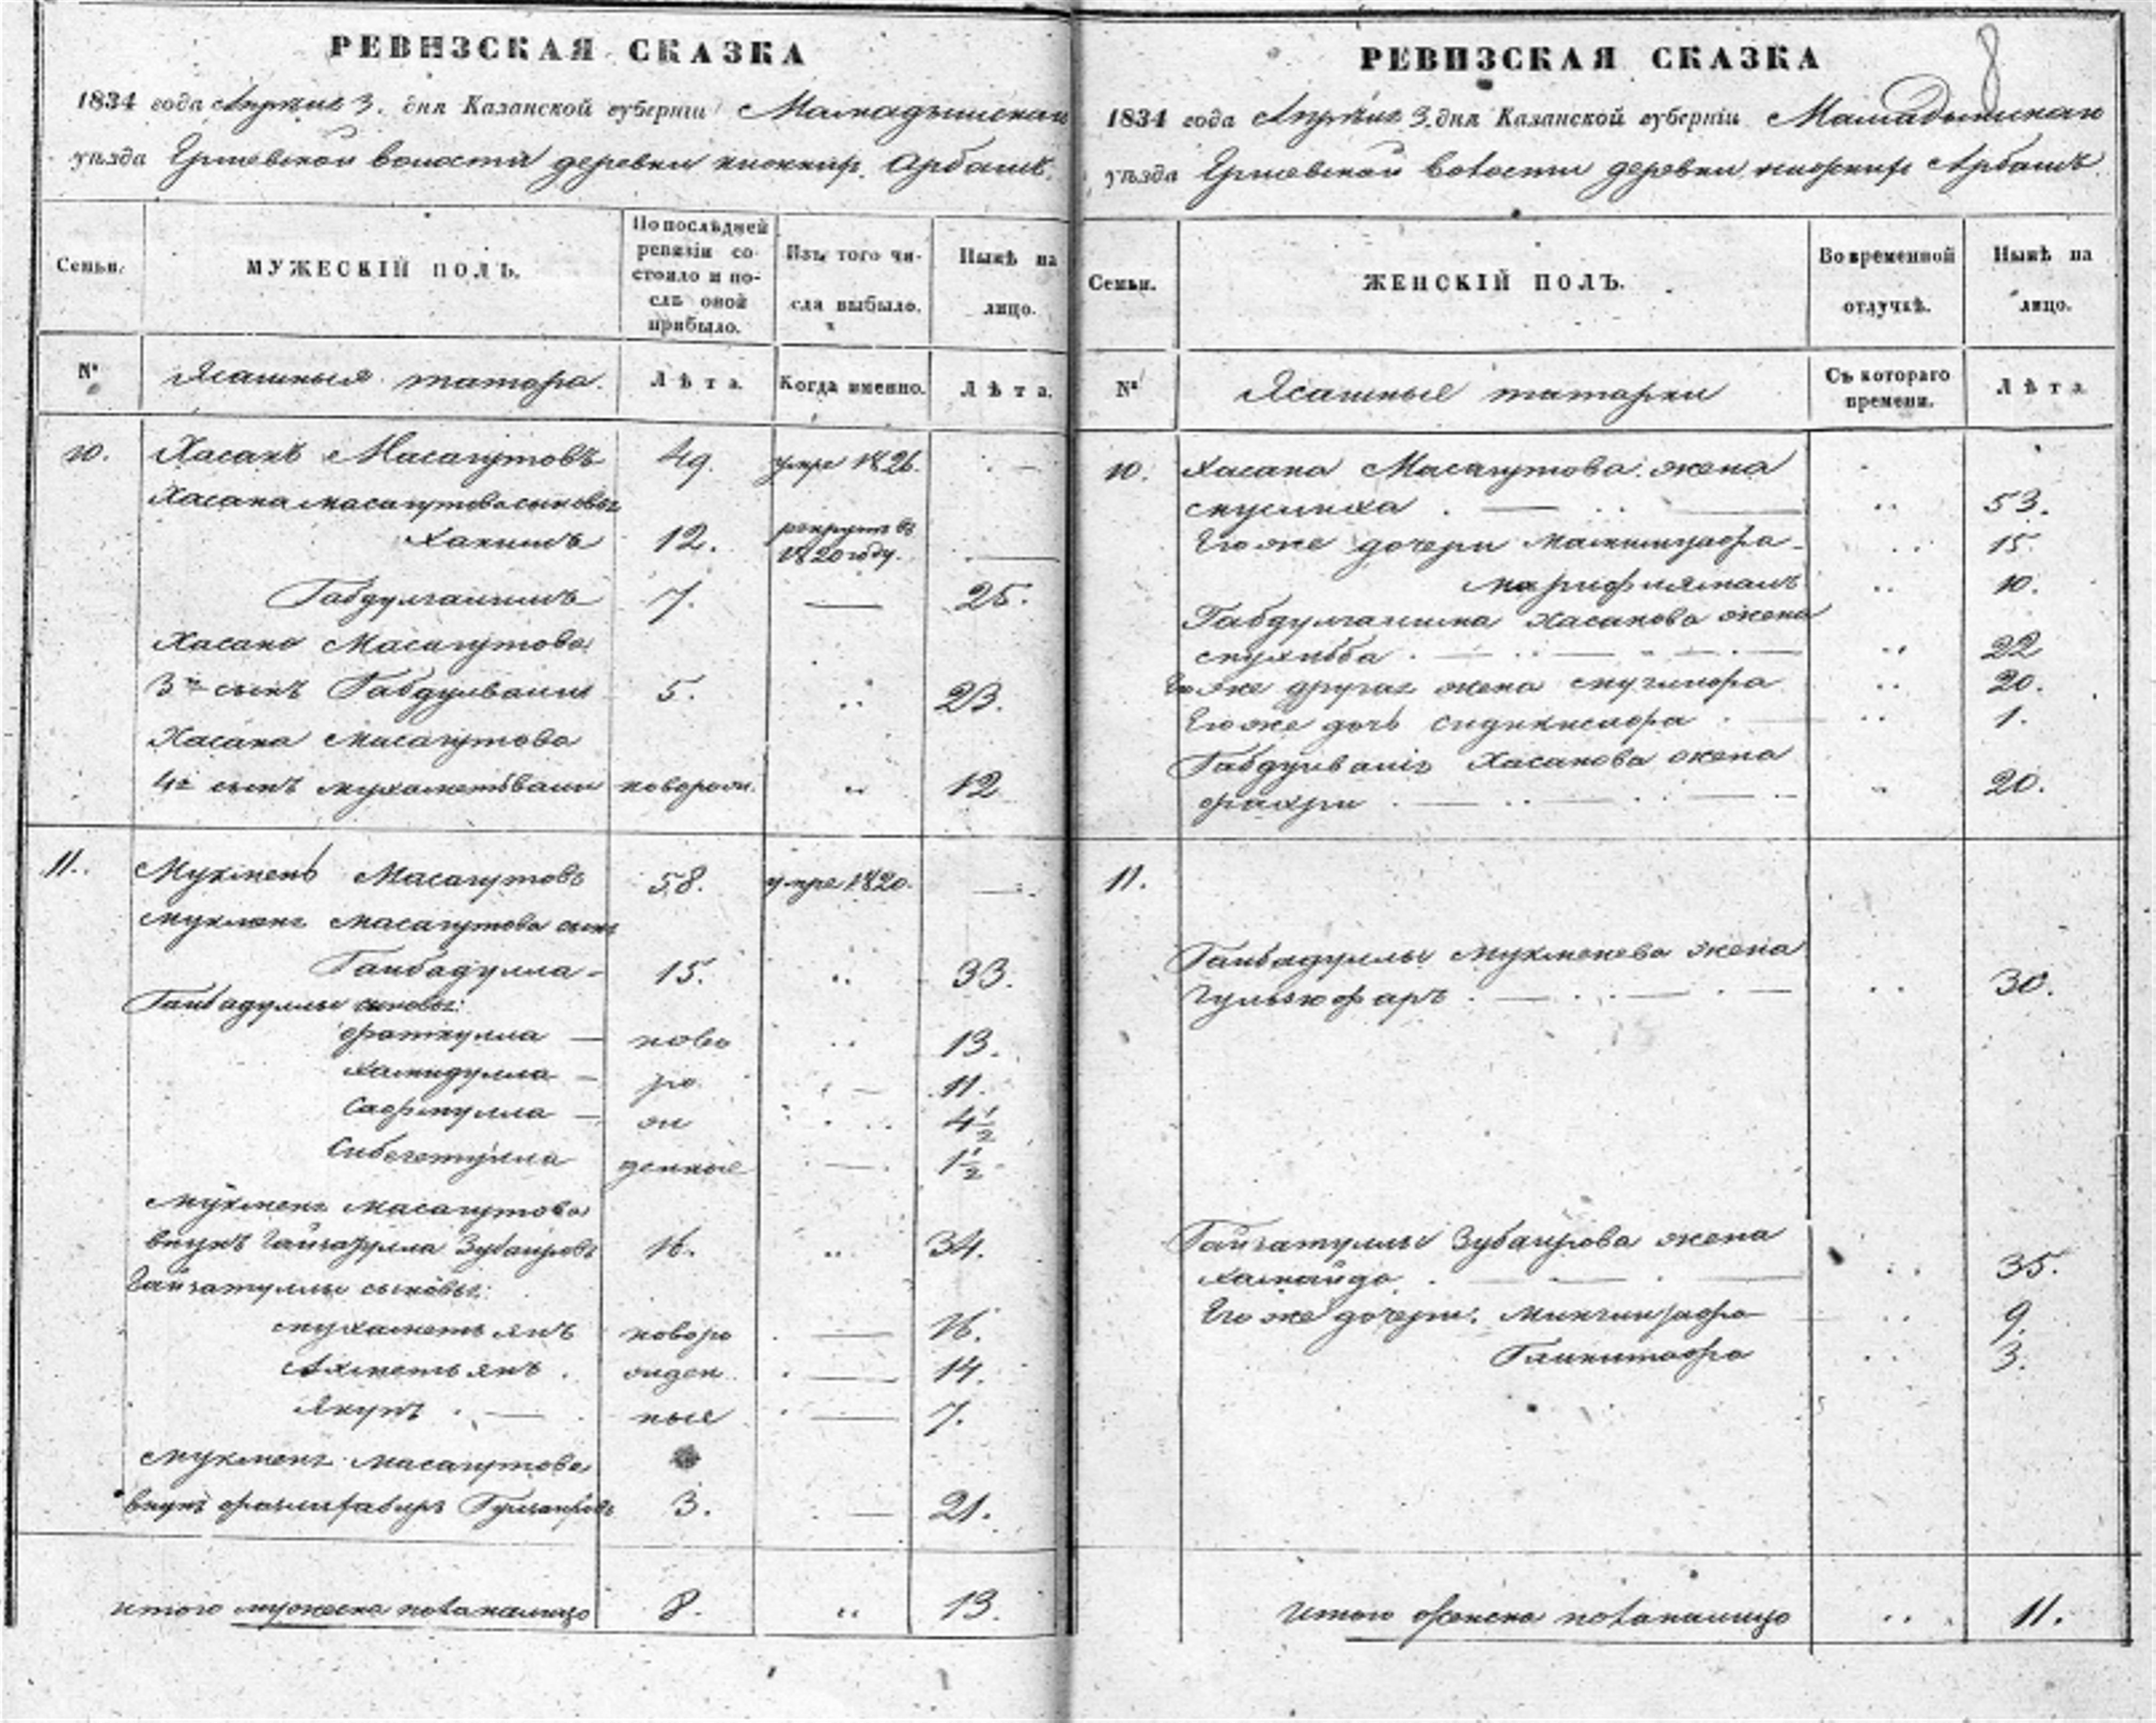 РЕВИЗСКАЯ СКАЗКА
1834 года Апреля 3. дня Казанской губерніи Мамадышскаго
уѣзда волости деревни нижнир. Арбашъ.
Семьи.
МУЖЕСКІЙ ПОЛЪ.
По послѣдней ревизіи состояло и послѣ оной прибыло.
Изъ того числа выбыло.
Нынѣ на лицо.
№
Ясашныя татара.
Лѣта.
Когда именно.
Лѣта.
10. Хасанъ Масагутовъ 49. умре 1826. —
Хасана Масагутова сыновья
Хакимъ 12. рекрутъ въ 1820 году. —
Габдулгалимъ 7. — 25.
Хасана Масагутова
3й сынъ Габдулвали 5. 23.
Хасана Масагутова
4й сынъ Мухаметвали новорож. 12
11. Мукмень Масагутовъ 58. умре 1820. —
Мукменя Масагутова сынъ
Гаибадулла 15. 33.
Гаибадуллы сыновья:
Фаткулла — ново 13.
Хамидулла — ро 11.
Сафиулла — ж 4½
Сибегатулла денные 1½
Мукменя Масагутова
внукъ Зубаировъ 16. 34.
Гайзатуллы сыновья:
Мухаметьянъ новоро — 16.
Ахметьянъ . жден — 14.
Якупъ . — ные — 7.
Мукменя Масагутова
внукъ 3. — 21.
итого мужеска пола налицо 8. 13.
8
РЕВИЗСКАЯ СКАЗКА
1834 года Апреля 3. дня Казанской губерніи Мамадышскаго
уѣзда волости деревни нижнир Арбашъ.
Семьи.
ЖЕНСКІЙ ПОЛЪ.
Во временной отлучкѣ.
Нынѣ на лицо.
№
Ясашные татарки
Съ котораго времени.
Лѣта
10. Хасана Масагутова жена
Муслиха . — 53.
Его же дочери 15.
10.
Габдулгалима Хасанова жена
Мухибба . — 22
Его же другая жена 20.
Его же дочь 1.
Габдулвалія Хасанова жена
Фахри . — 20.
11.
Гаибадуллы Мукменева жена
Гульзюфаръ . — 30.
Гайзатуллы Зубаирова жена
Хамайда . — 35.
Его же дочери: 9.
3.
Итого женска пола налицо 11.